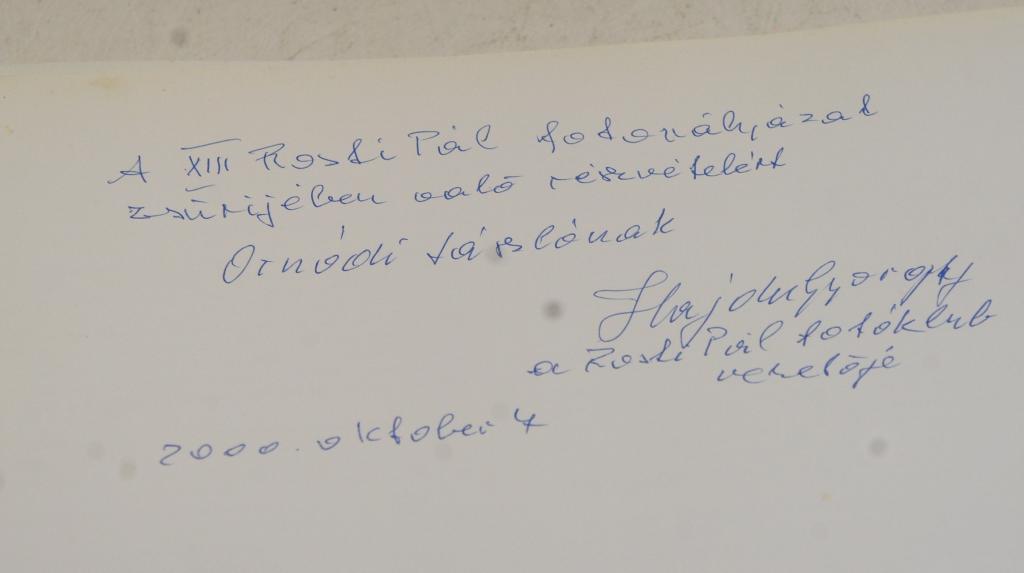 A XIII Rosti Pál fotopályázat
zsűrijében való részvételért
Ormódi Lászlónak
Hajdu György
a Rosti Pál fotóklub
vezetője
2000. oktober 4